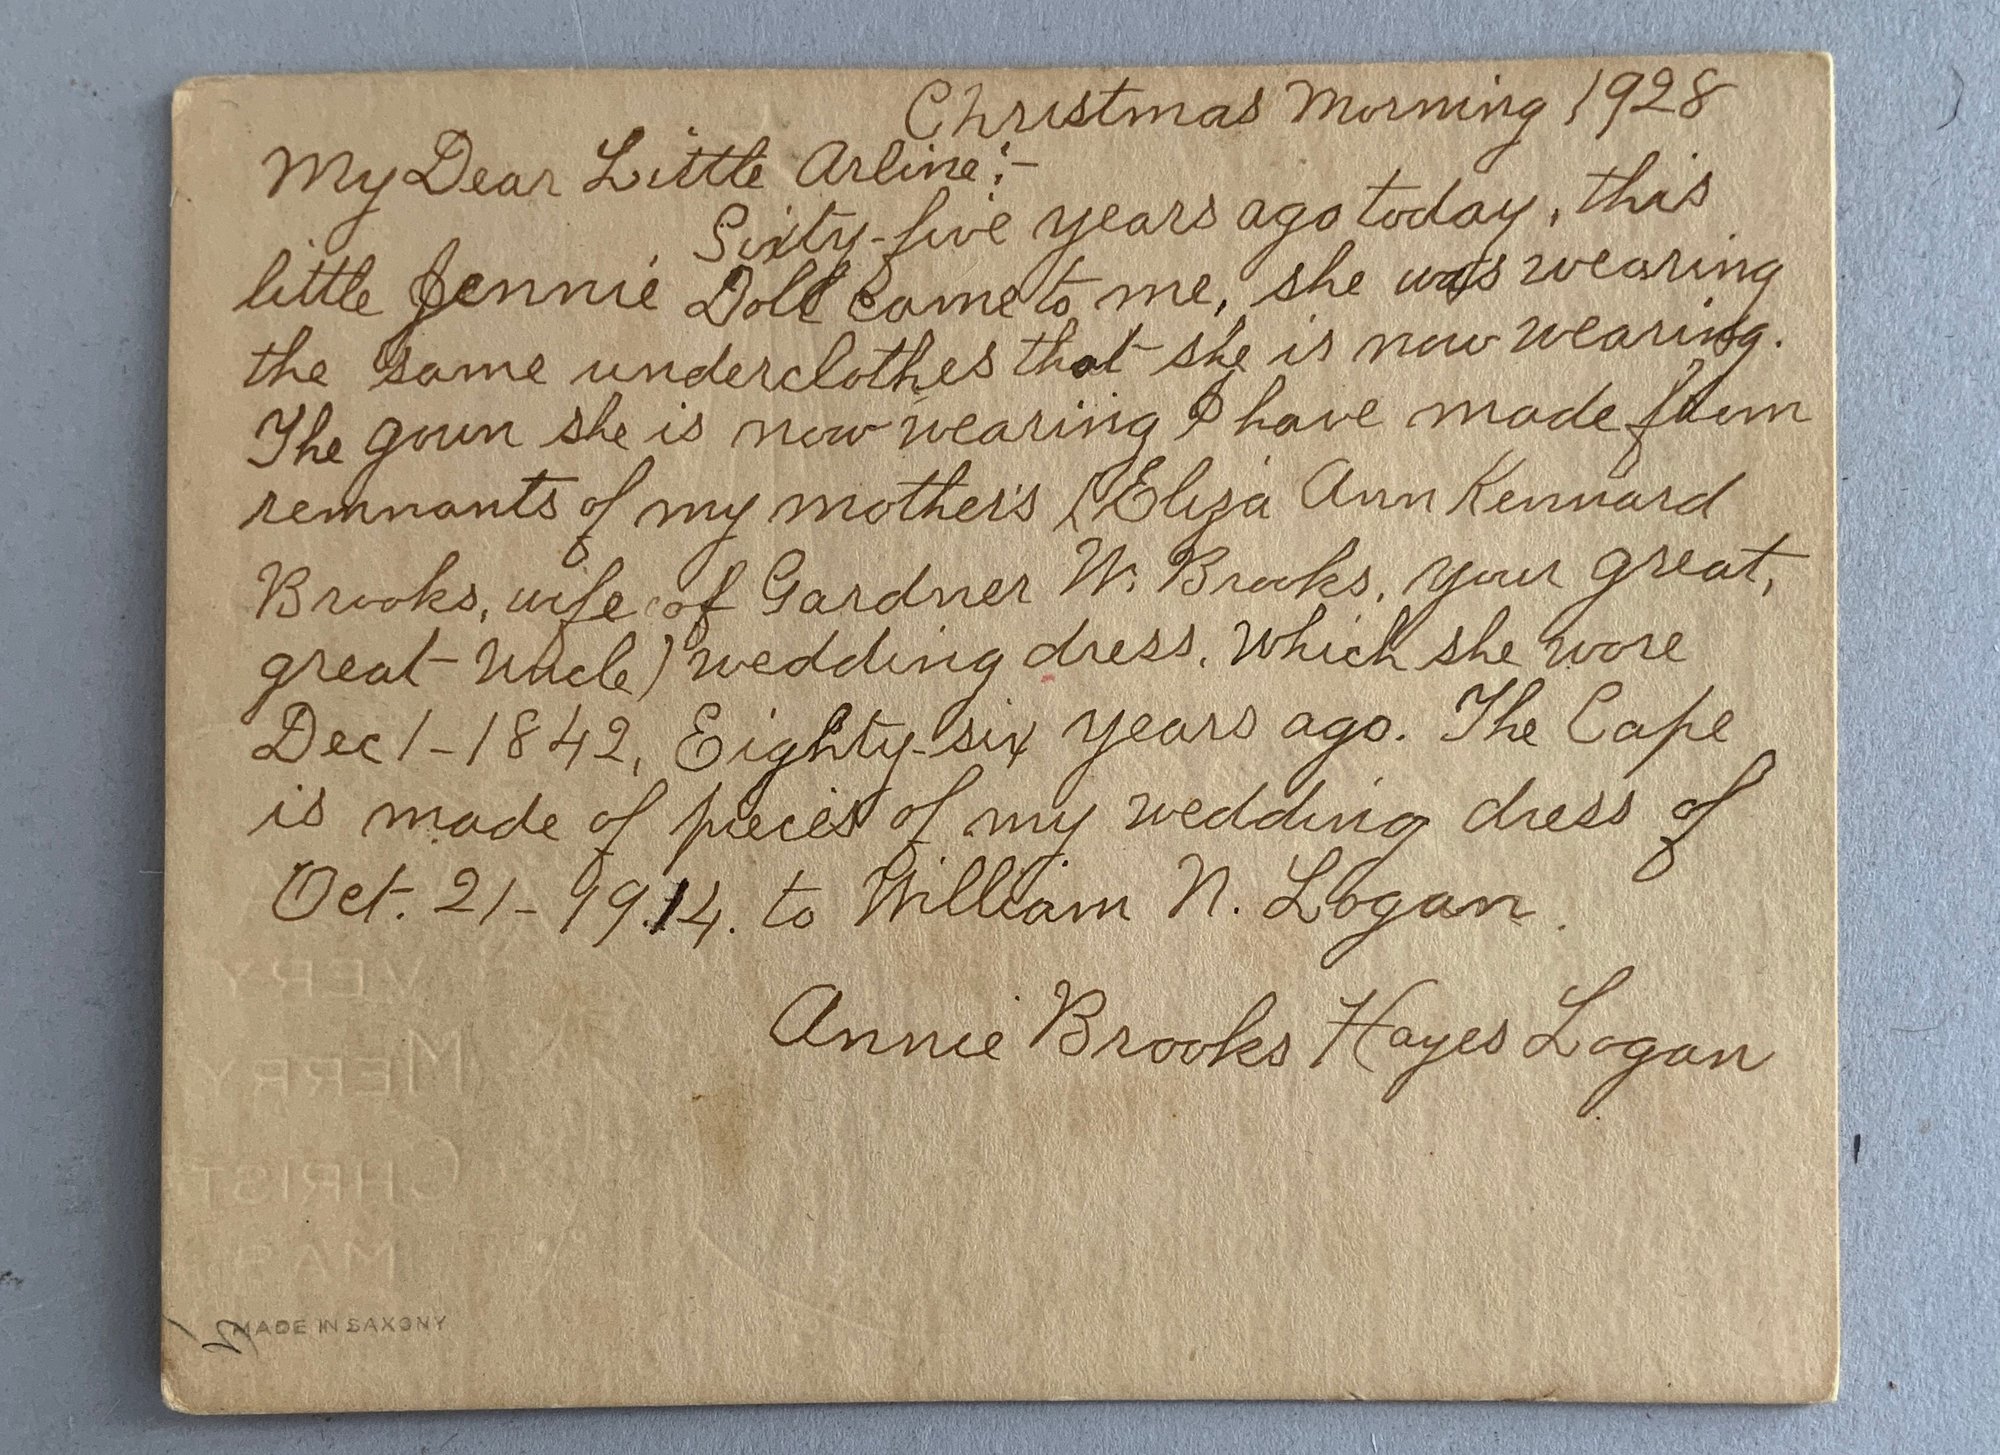 Christmas Morning 1928
My Dear Little Arline:-
Sixty-five years ago today, this
little Jennie Doll came to me, she was wearing
the same underclothes that she is now wearing.
The gown she is now wearing I have made from
remnants of my mother's (Eliza Ann Kennard
Brooks, wife of Gardner W. Brooks, your great,
great Uncle) wedding dress, which she wore
Dec 1-1842, Eighty-six years ago. The Cape
is made of pieces of my wedding dress of
Oct. 21-1914. to William N. Logan.
Annie Brooks Hayes Logan
VERY
MERRY
CHRIST
MAS
MADE IN SAXONY